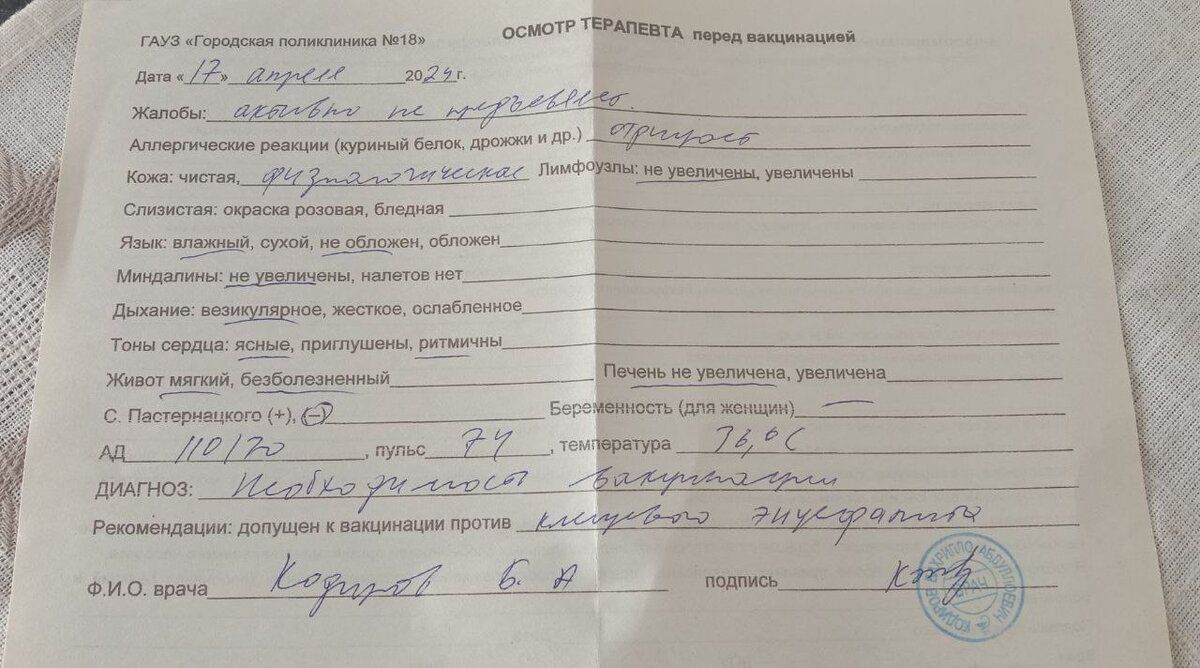 ГАУЗ «Городская поликлиника №18» ОСМОТР ТЕРАПЕВТА перед вакцинацией
Дата «17» апреля 2024г.
Жалобы: активно не предъявляет.
Аллергические реакции (куриный белок, дрожжи и др.) отрицает
Кожа: чистая, физиологическая Лимфоузлы: не увеличены, увеличены
Слизистая: окраска розовая, бледная
Язык: влажный, сухой, не обложен, обложен
Миндалины: не увеличены, налетов нет
Дыхание: везикулярное, жесткое, ослабленное
Тоны сердца: ясные, приглушены, ритмичны
Живот мягкий, безболезненный Печень не увеличена, увеличена
С. Пастернацкого (+), (–) Беременность (для женщин) —
АД 110/70, пульс 74, температура 36,6С
ДИАГНОЗ: Необходимость вакцинации
Рекомендации: допущен к вакцинации против клещевого энцефалита
Ф.И.О. врача Кодиров Б. А подпись
КОДИРОВ АБДУЛЛОЕВИЧ
ВРАЧ